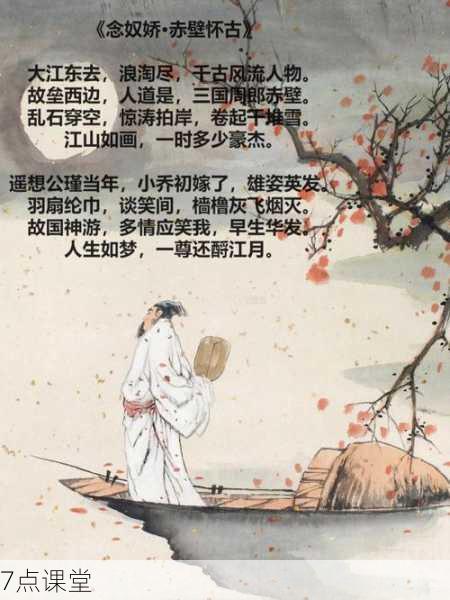 《念奴娇·赤壁怀古》
大江东去，浪淘尽，千古风流人物。
故垒西边，人道是，三国周郎赤壁。
乱石穿空，惊涛拍岸，卷起千堆雪。
江山如画，一时多少豪杰。
遥想公瑾当年，小乔初嫁了，雄姿英发。
羽扇纶巾，谈笑间，樯橹灰飞烟灭。
故国神游，多情应笑我，早生华发。
人生如梦，一尊还酹江月。
7点课堂